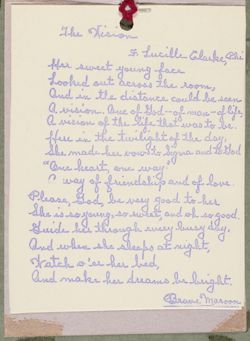 The Vision
F. Lucille Clarke, Phi
Her sweet young face
Looked out across the room,
And in the distance could be seen
A vision. One of God—of man—of life,
A vision of the life that was to be.
Here in the twilight of the day,
She made her vow to and to God
"One heart, one way"
A way of friendship and of love.
Please, God, be very good to her
She is so young, so sweet, and oh so good.
Guide her through every busy day.
And when she sleeps at night,
Watch o'er her bed,
And make her dreams be bright.